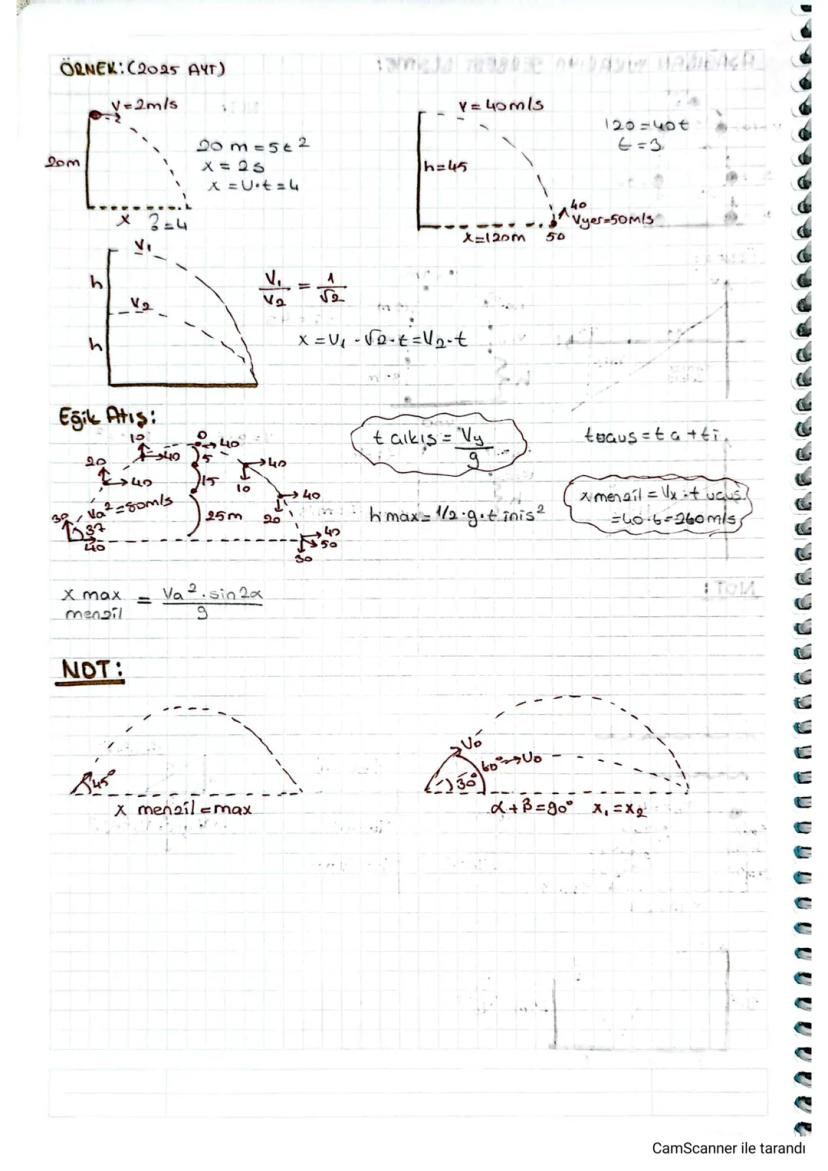 ÖRNEK: (2025 AYT)
V=2m/s
20m
20 m = 5t²
x = 2s
x = U·t = 4
x ?=4
V=40m/s
h=45
120=40t
t=3
40
Vyer=50m/s
x=120m 50
V₁
h
V₂
h
V₁/V₂ = 1/√2
x = U₁ · √2 · t = U₂ · t
Eğik Atış:
0
40
10
40
5
20
40
15
40
10
Va²=50m/s
25m
40
20
30
37
40
40
50
30
t çıkış = Vy/g
tuçus = tç + ti
h max = 1/2 · g · t iniş²
x menzil = Vx · t uçuş
= 40 · 6 = 260 m/s
x max menzil = Va² · sin2α / g
NOT:
45°
x menzil = max
U₀
60° → U₀
30°
α + β = 90° x₁ = x₂
CamScanner ile tarandı